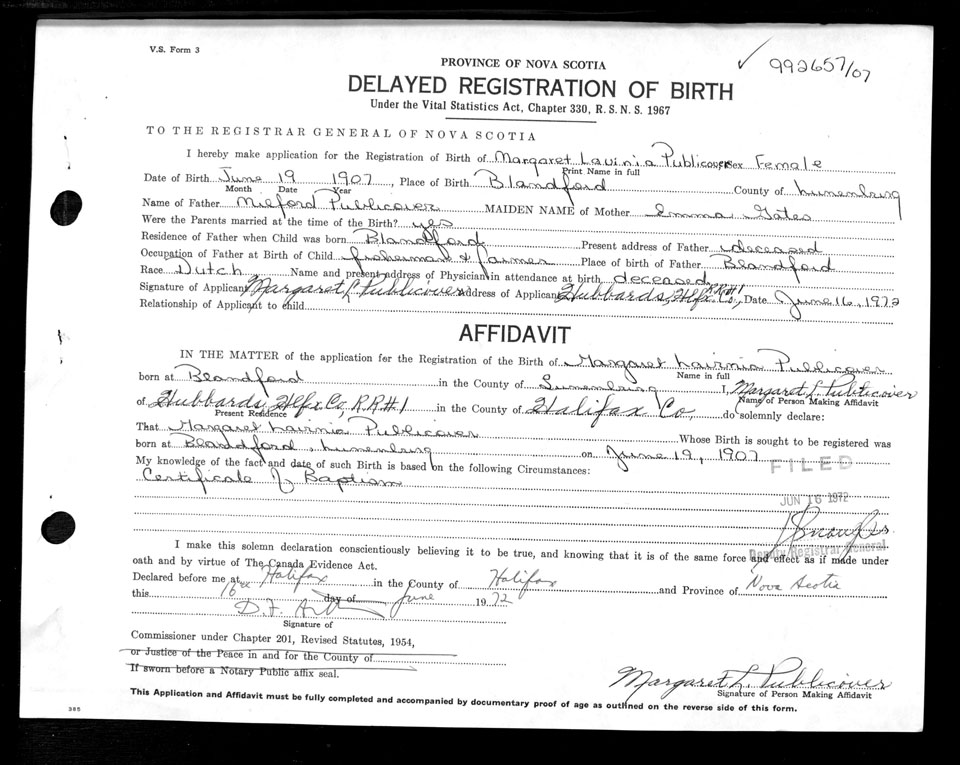 V.S. Form 3
992657/07
PROVINCE OF NOVA SCOTIA
DELAYED REGISTRATION OF BIRTH
Under the Vital Statistics Act, Chapter 330, R.S.N.S. 1967
TO THE REGISTRAR GENERAL OF NOVA SCOTIA
I hereby make application for the Registration of Birth of Margaret Lavinia Publicover Sex Female
Print Name in full
Date of Birth June 19 1907, Place of Birth Blandford County of Lunenburg
Month Date Year
Name of Father Milford Publicover MAIDEN NAME of Mother Emma Gates
Were the Parents married at the time of the Birth? yes
Residence of Father when Child was born Blandford Present address of Father deceased
Occupation of Father at Birth of Child fisherman & farmer Place of birth of Father Blandford
Race Dutch Name and present address of Physician in attendance at birth deceased
Signature of Applicant Margaret L Publicover Address of Applicant Hubbards, Hlfx. Co, RR#1 Date June 16, 1972
Relationship of Applicant to child
AFFIDAVIT
IN THE MATTER of the application for the Registration of the Birth of Margaret Lairnia Publicover
Name in full
born at Blandford in the County of Lunenburg I, Margaret L. Publicover
Name of Person Making Affidavit
of Hubbards, Hlfx. Co, R.R#1 in the County of Halifax Co, do solemnly declare:
Present Residence
That Margaret Lairnia Publicover Whose Birth is sought to be registered was
born at Blandford, Lunenburg on June 19, 1907
FILED
My knowledge of the fact and date of such Birth is based on the following Circumstances:
Certificate of Baptism
JUN 16 1972
Deputy Registrar General
I make this solemn declaration conscientiously believing it to be true, and knowing that it is of the same force and effect as if made under
oath and by virtue of The Canada Evidence Act.
Declared before me at Halifax in the County of Halifax and Province of Nova Scotia
this 16th day of June 1972
D.F.
Signature of
Commissioner under Chapter 201, Revised Statutes, 1954,
or Justice of the Peace in and for the County of
If sworn before a Notary Public affix seal.
Margaret L Publicover
Signature of Person Making Affidavit
This Application and Affidavit must be fully completed and accompanied by documentary proof of age as outlined on the reverse side of this form.
385